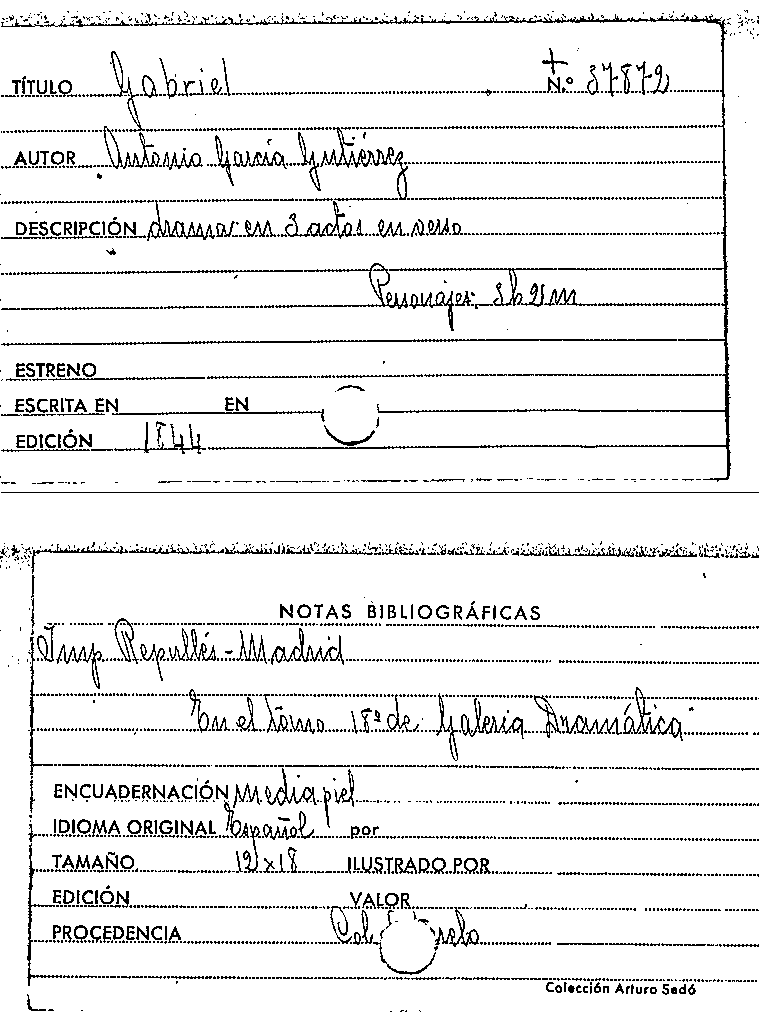 TÍTULO Gabriel
+
N.º 37872
AUTOR Antonio García Gutiérrez
DESCRIPCIÓN drama en 3 actos en verso
Personajes: 8h 2m
ESTRENO
ESCRITA EN EN
EDICIÓN 1844
NOTAS BIBLIOGRÁFICAS
Imp Repullés - Madrid
En el tomo 18º de Galeria Dramática"
ENCUADERNACIÓN media piel
IDIOMA ORIGINAL Español por
TAMAÑO 12x18 ILUSTRADO POR
EDICIÓN VALOR
PROCEDENCIA Col.
Colección Arturo Sedó